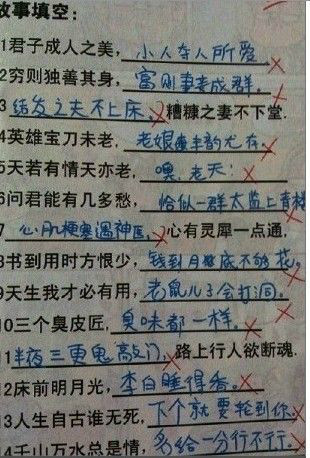 故事填空:
1君子成人之美，小人夺人所爱
2穷则独善其身，富则妻妾成群。
3结发之夫不上床，糟糠之妻不下堂.
4英雄宝刀未老，老娘丰韵尤存。
5天若有情天亦老，噢，老天:
6问君能有几多愁，恰似一群太监上青楼
7心肌梗塞遇神医，心有灵犀一点通，
8书到用时方恨少，钱到月底不够花。
9天生我才必有用，老鼠儿子会打洞。
10三个臭皮匠，臭味都一样。
11半夜三更鬼敲门，路上行人欲断魂.
12床前明月光，李白睡得香。
13人生自古谁无死，下个就要轮到你
14千山万水总是情，多给一分行不行。